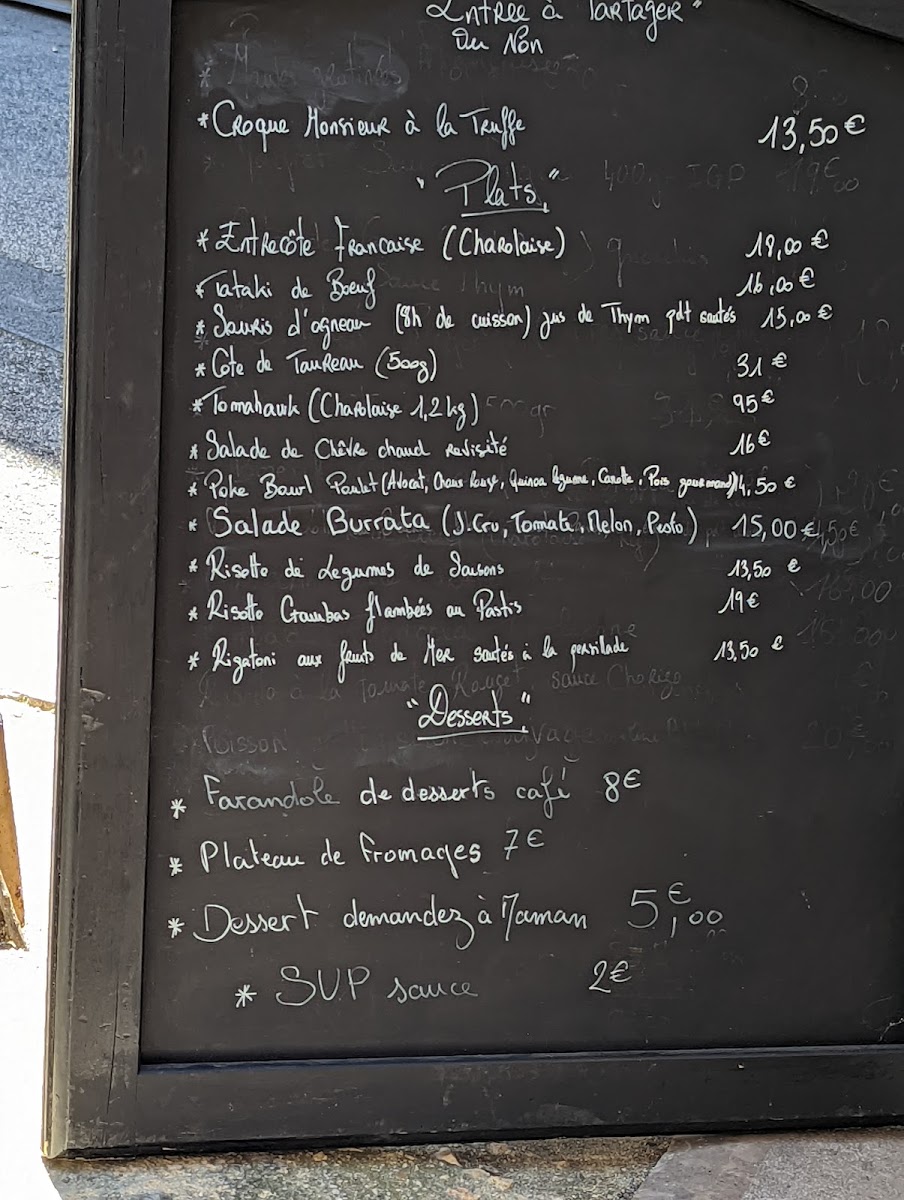 Entrée à Partager"
Ou Non
* Croque Monsieur à la Truffe 13,50€
"Plats"
* Entrecôte Francaise (Charolaise) 19,00 €
* Tataki de Boeuf 16,00€
* Souris d'agneau (8h de cuisson) jus de Thym pdt sautés 15,00 €
* Cote de Taureau (500g) 31 €
* Tomahawk (Charolaise 1,2 kg) 95€
* Salade de Chèvre chaud revisité 16€
* Poke Bowl Poulet (Avocat, Choux Rouge, Quinoa légume, Carotte, Pois gourmand) 14,50 €
* Salade Burrata (J.Cru, Tomate, Melon, Pesto) 15,00 €
* Risotto de Légumes de Saisons 13,50 €
* Risotto Gambas flambées au Pastis 19€
* Rigatoni aux fruits de Mer sautés à la persilade 13,50 €
"Desserts"
* Farandole de desserts café 8€
* Plateau de fromages 7€
* Dessert demandez à Maman 5€,00
* SUP sauce 2€